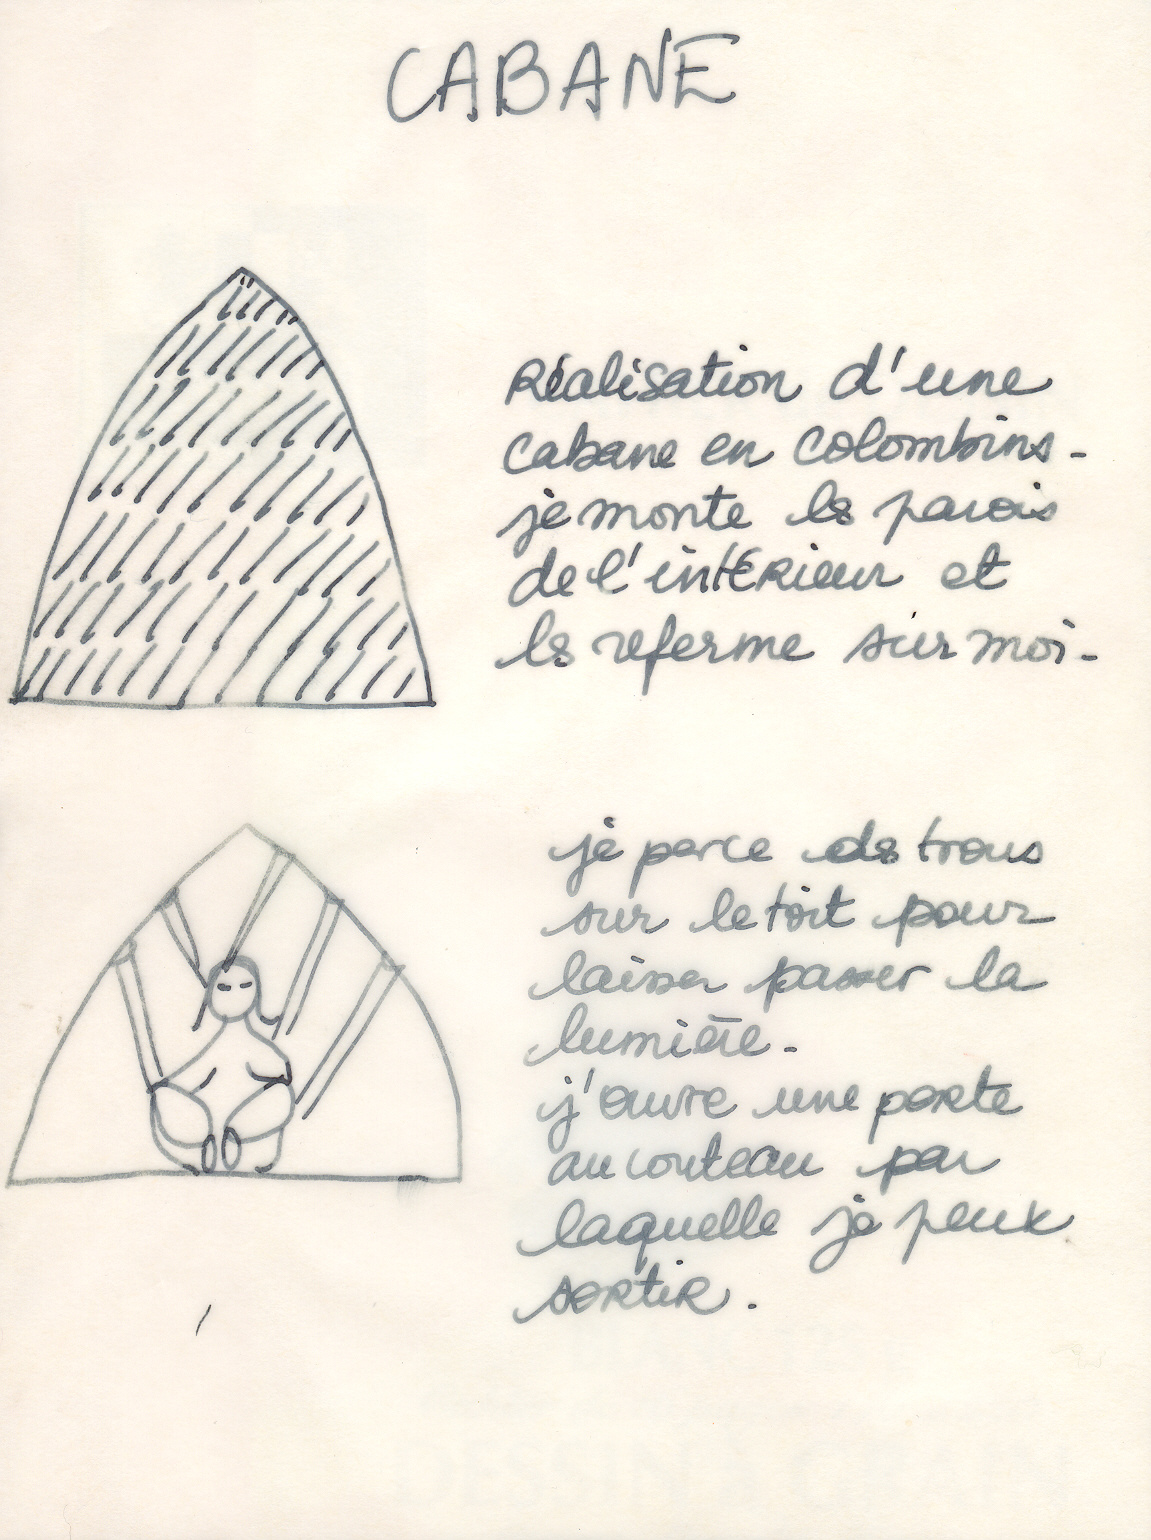 CABANE
Réalisation d'une
cabane en colombins -
je monte les parois
de l'intérieur et
les referme sur moi -
je perce des trous
sur le toit pour
laisser passer la
lumière -
j'ouvre une porte
au couteau par
laquelle je peux
sortir .